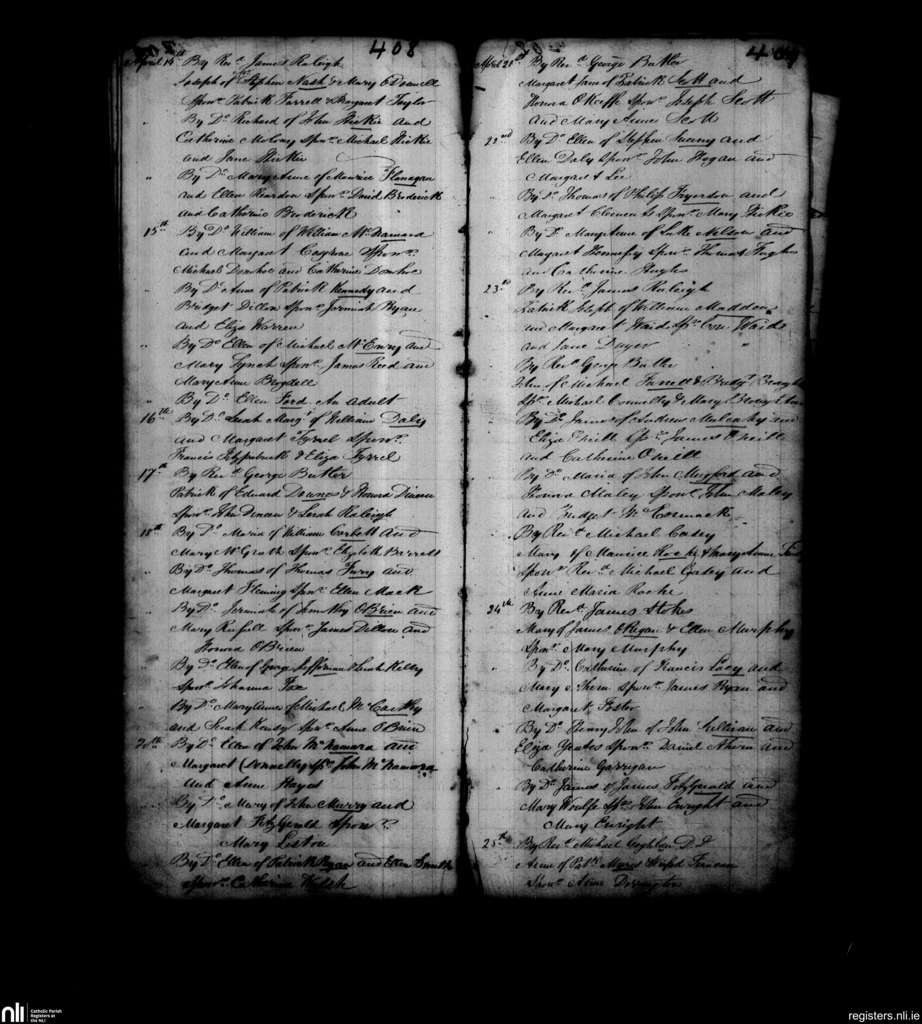 408
April 14th By Revd. James Raleigh
Joseph of Stephen Nash & Mary O Donnell
Sponrs. Patrick Farrell & Margaret Taylor
" By Do. Richard of John Hickie and
Catherine Molony Sponrs. Michael Hickie
and Jane Hickie
" By Do. Mary Anne of Maurice Flanagan
and Ellen Reardon Sponrs. David Broderick
and Catherine Broderick
15th By Do. William of William McNamara
and Margaret Sponrs.
Michael Donohoe and Catherine Donohoe
" By Do. Anne of Patrick Kennedy and
Bridget Dillon Sponrs. Jeremiah Ryan
and Eliza Warren
" By Do. Ellen of Michael McEnery and
Mary Lynch Sponrs. James Reed and
Mary Anne Brogdell
" By Do. Ellen Ford An adult
16th By Do. Sarah Margt. of William Daly
and Margaret Tyrrel Sponrs.
Francis Fitzpatrick & Eliza Tyrrel
17th By Revd. George Butler
Patrick of Edward Downes & Honora Dineen
Sponrs. John Dineen & Sarah Raleigh
18th By Do. Maria of William Corbett and
Mary McGrath Sponrs. Elizabeth Barrett
" By Do. Thomas of Thomas Fury and
Margaret Fleming Sponrs. Ellen Mack
" By Do. Jeremiah of Timothy O Brien and
Mary Sponrs. James Dillon and
Honora O Brien
By Do. Ellen of George & Sarah Kelly
Sponrs. Johanna Fox
" By Do. Mary Anne of Michael McCarthy
and Sarah Sponrs. Anne O Brien
20th By Do. Ellen of John McNamara and
Margaret Donnelly Sps. John McNamara
and Anne Hayes
By Do. Mary of John Murry and
Margaret FitzGerald Sponrs.
Mary Liston
By Do. Ellen of Patrick Ryan and Ellen Smith
Sponrs. Catherine Walsh
409
April 21st By Revd. George Butler
Margaret Jane of Patrick Scott and
Honora O Keeffe Sponrs. Joseph Scott
and Mary Anne Scott
22nd By Do. Ellen of Stephen and
Ellen Daly Sponrs. John Hogan and
Margaret Lee
" By Do. Thomas of Philip and
Margaret Clements Sponrs. Mary Hickie
" By Do. Mary Anne of Luke Nelson and
Margaret Hennessy Sponrs. Thomas Hughes
and Catherine Hughes
23rd By Revd. James Raleigh
Patrick Joseph of William Madden
and Margaret Waide Sps. Con. Waide
and Jane Dwyer
By Revd. George Butler
John of Michael Farrell & Bridgt.
Sps. Michael Connelly & Mary
By Do. James of Andrew Mulcahy and
Eliza O Neill Sps. James O Neill
and Catherine O Neill
By Do. Maria of John Mugford and
Honora Maley Sponrs. John Maley
and Bridget McCormack
By Revd. Michael Casey
Mary of Maurice Roche & Mary Anne
Sponrs. Revd. Michael Casey and
Anne Maria Roche
24th By Revd. James Stokes
Mary of James O Regan & Ellen Murphy
Sponrs. Mary Murphy
" By Do. Catherine of Francis Lacy and
Mary Ahern Sponrs. James Ryan and
Margaret Foster
By Do. Henry John of John Sullivan and
Eliza Yeates Sponrs. Daniel Ahern and
Catherine Garrigan
By Do. James of James FitzGerald and
Mary Woulfe Sps. John Enright and
Mary Enright
25th By Revd. Michael Coghlan
Anne of Patk. Myers
Sponrs. Anne
nli
Catholic Parish
Registers at
the NLI
registers.nli.ie